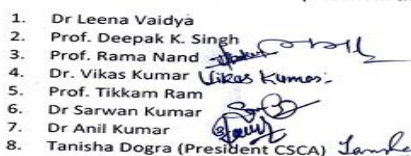 1. Dr Leena Vaidya
2. Prof. Deepak K. Singh
3. Prof. Rama Nand
4. Dr. Vikas Kumar Vikas Kumar
5. Prof. Tikkam Ram
6. Dr Sarwan Kumar
7. Dr Anil Kumar
8. Tanisha Dogra (President CSCA)